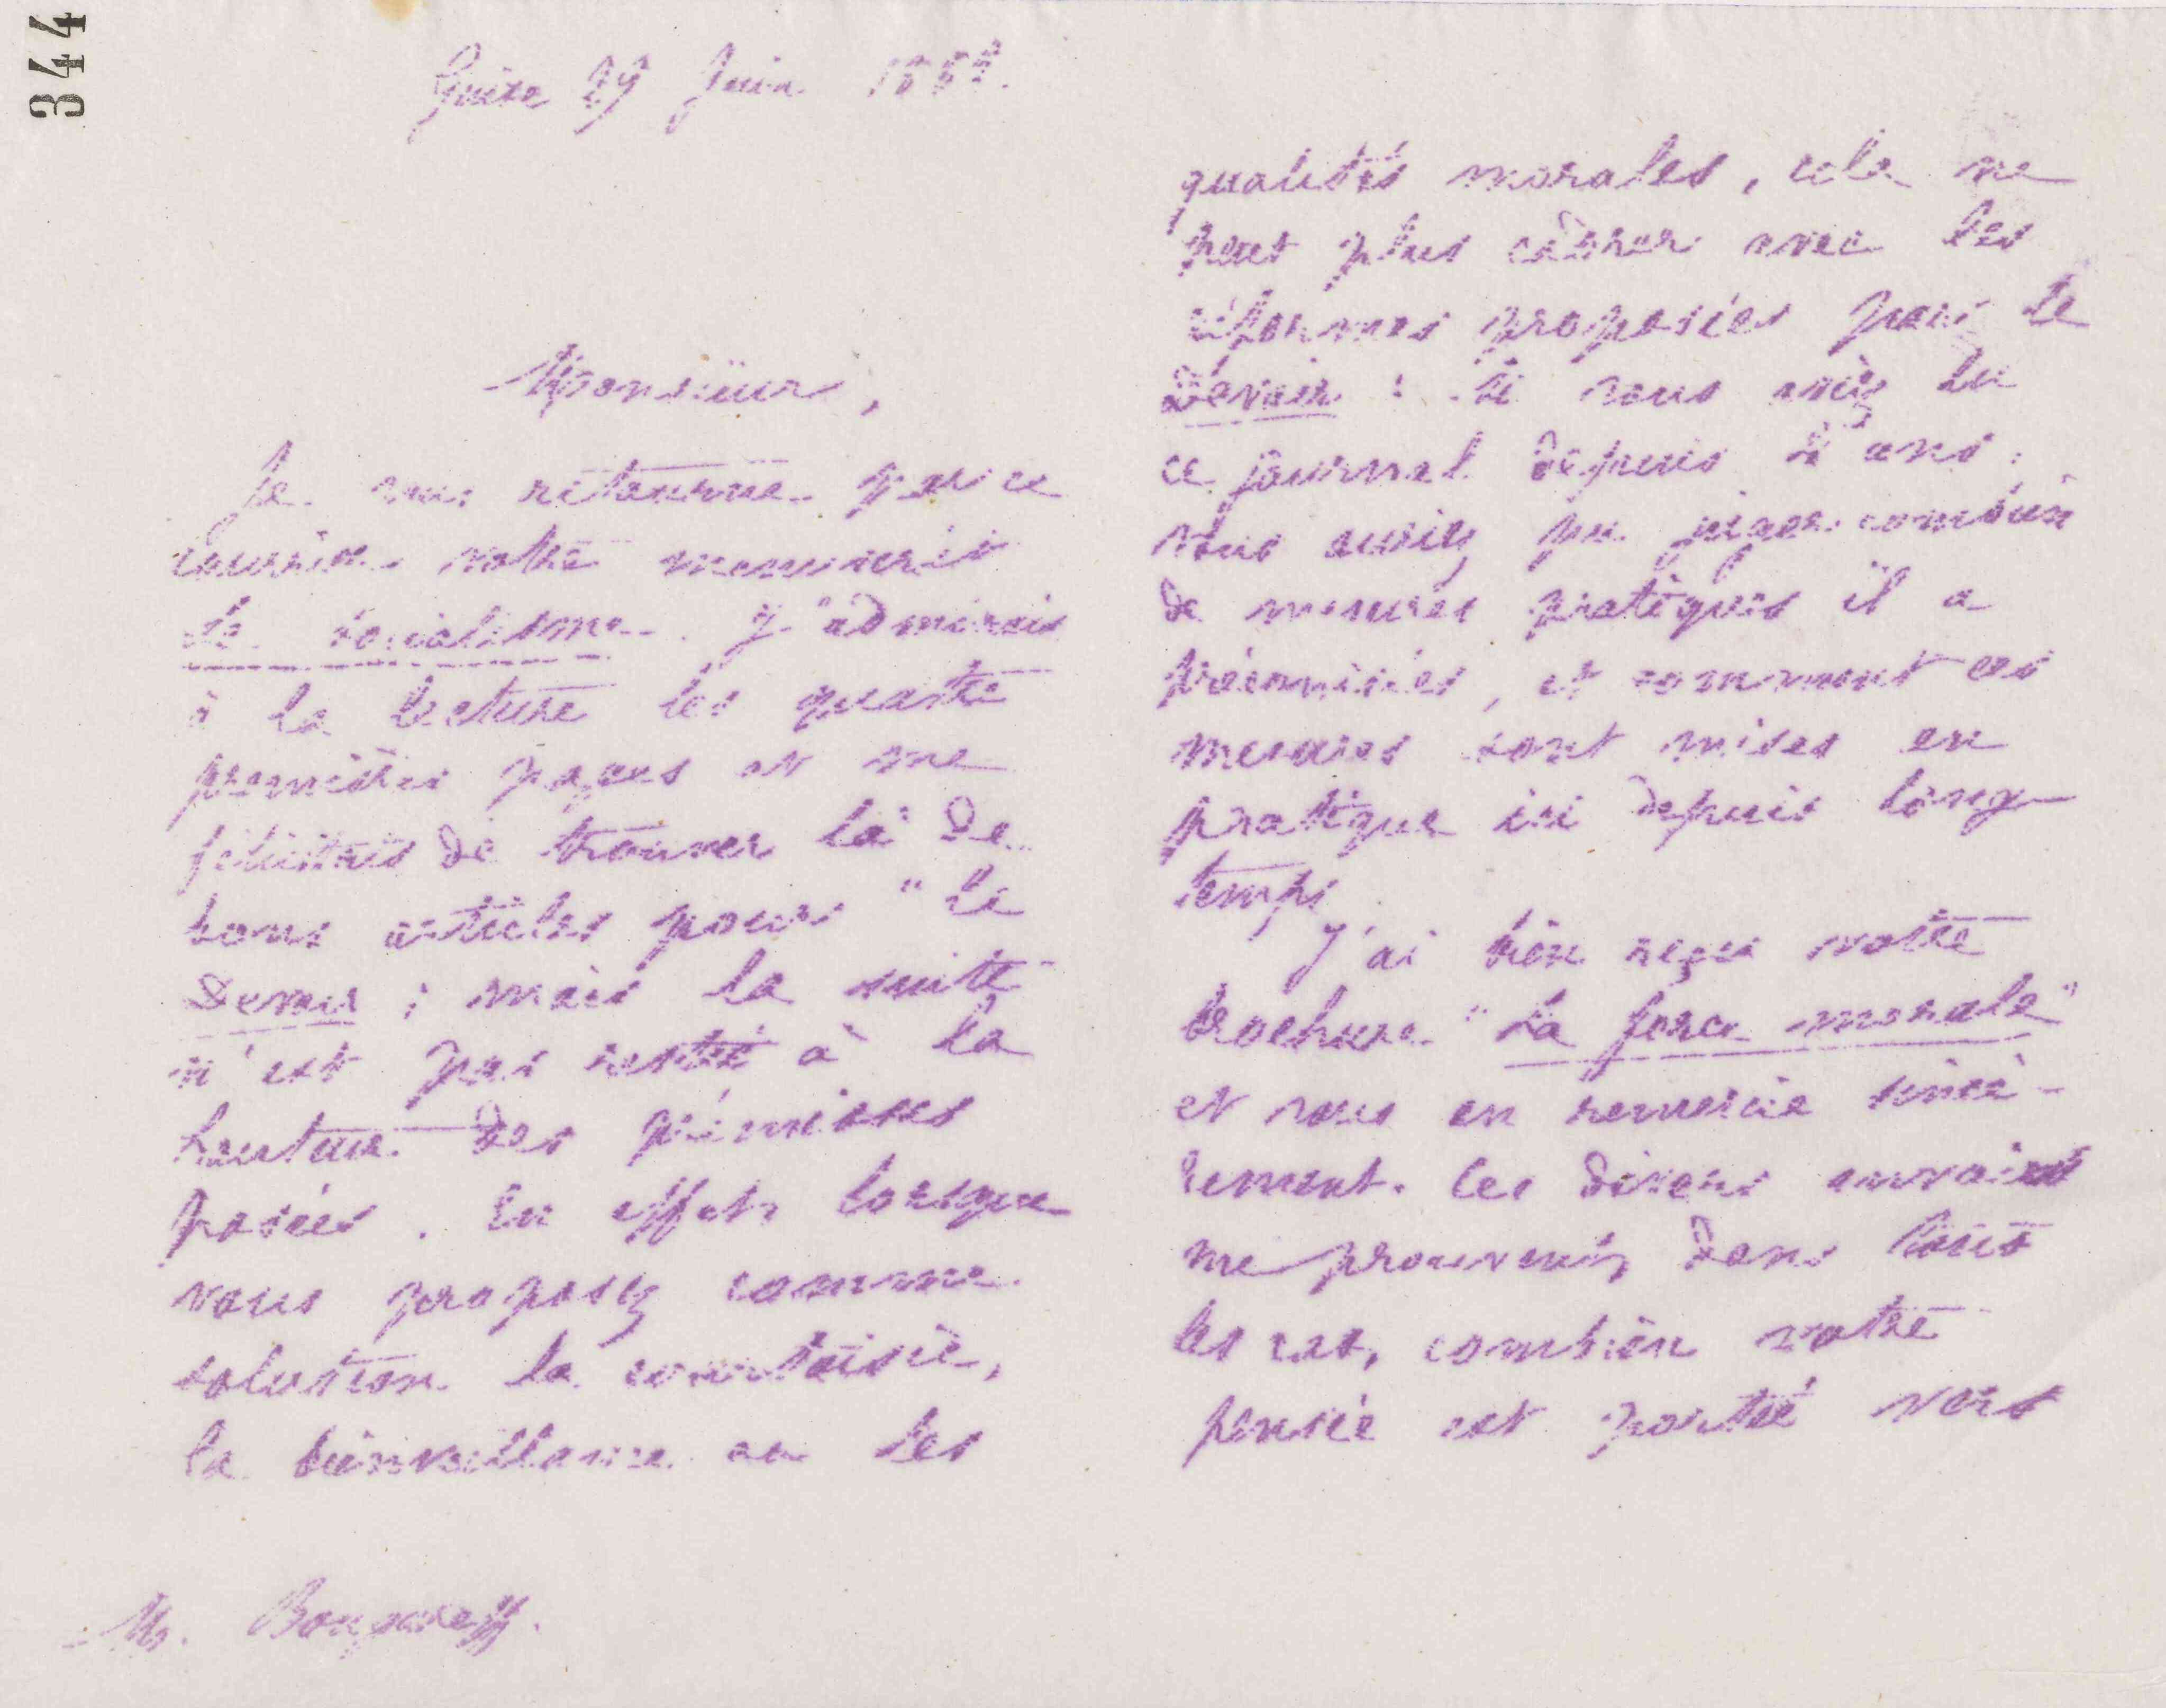 344
Guise 29 Juin
Monsieur,
Je vous retourne par ce
courrier votre manuscrit
Le socialisme. J'admirais
à la lecture les quatre
premières pages et me
félicitais de trouver là de
bons articles pour "Le
Devoir ; mais la suite
n'est pas restée à la
hauteur des prémisses
posées. En effet, lorsque
vous proposez comme
solution la courtoisie,
la bienveillance ou les
M.
qualités morales, cela ne
peut plus cadrer avec les
réformes proposées par le
Devoir : Si vous aviez lu
ce journal depuis ans,
vous auriez pu juger combien
de mesures pratiques il a
préconisées, et comment ces
mesures sont mises en
pratique ici depuis long
temps
J'ai bien reçu votre
brochure "La force morale"
et vous en remercie sincè-
rement. Ces divers envois
me prouvent, dans tous
les cas, combien votre
pensée est portée vers